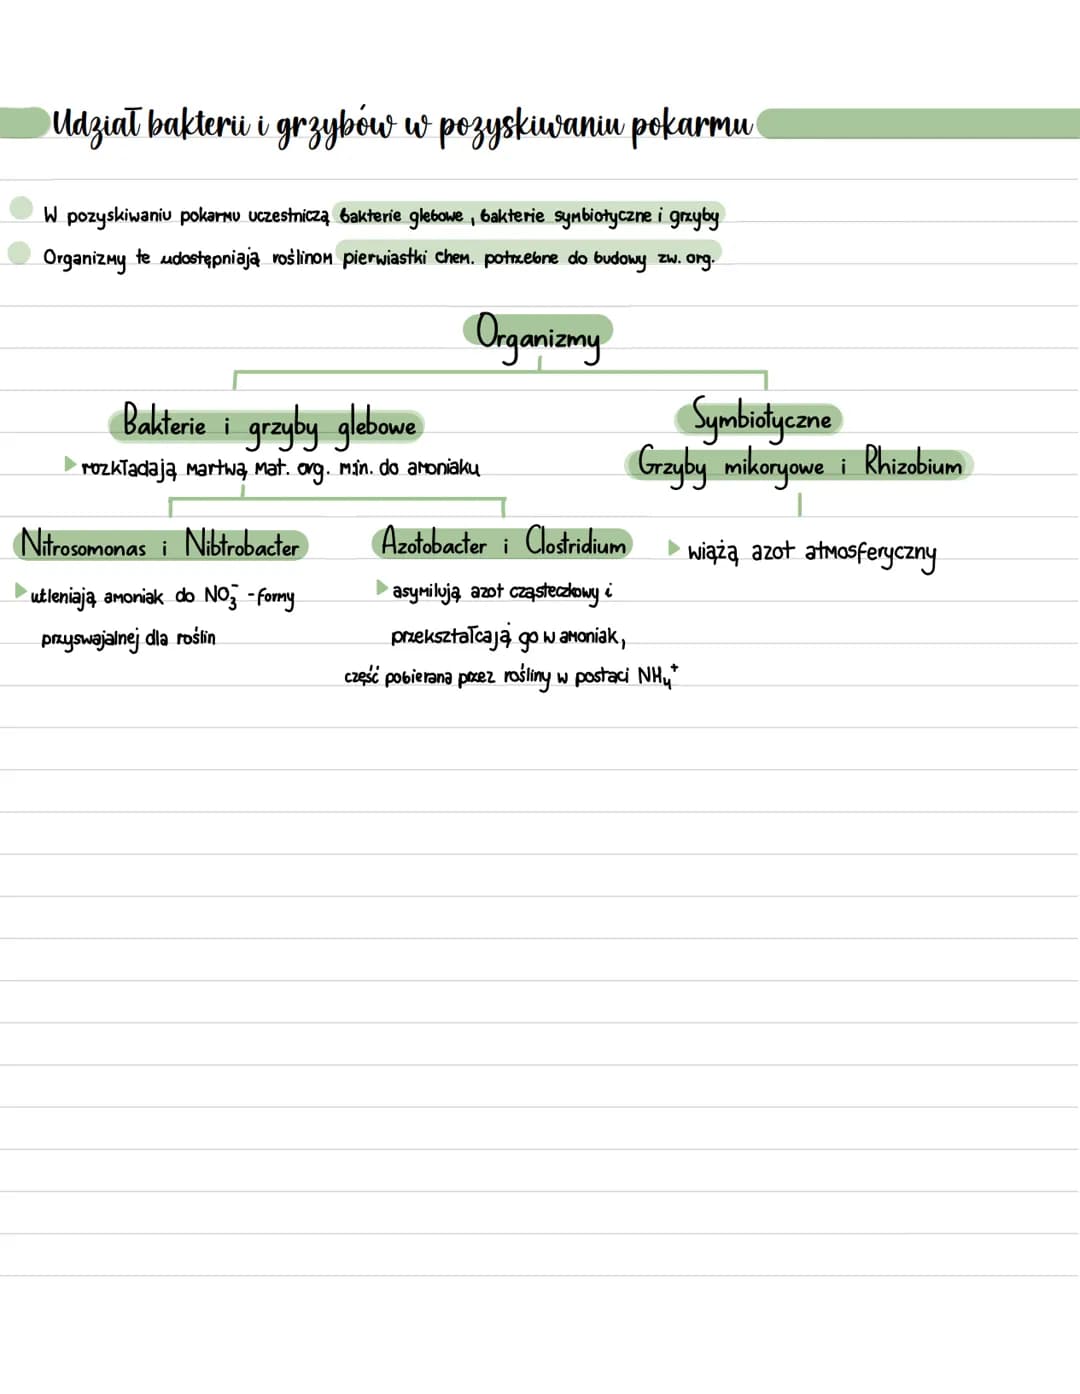 Udział bakterii i grzybów w pozyskiwaniu pokarmu
W pozyskiwaniu pokarmu uczestniczą bakterie glebowe, bakterie symbiotyczne i grzyby
Organizmy te udostępniają roślinom pierwiastki chem. potrzebne do budowy zw. org.
Organizmy
Bakterie i grzyby glebowe
rozkładają martwą mat. org. min. do amoniaku
Symbiotyczne
Grzyby mikoryowe i Rhizobium
Nitrosomonas i Nibtrobacter
utleniają amoniak do NO₃⁻ - formy
przyswajalnej dla roślin
Azotobacter i Clostridium
asymilują azot cząsteczkowy i
przekształcają go w amoniak,
część pobierana przez rośliny w postaci NH₄⁺
wiążą azot atmosferyczny